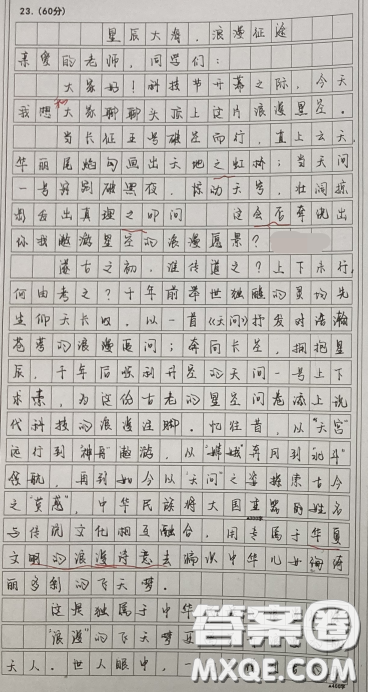 23.(60分)
星辰大海，浪漫征途
亲爱的老师，同学们：
大家好！科技节开幕之际，今天
我想和大家聊聊头顶上这片浪漫星空。
当长征五号破空而行，直上云天，
华丽尾焰勾画出天地之虹桥；当天问
一号
破黑夜，惊动天穹，壮阔
出真理之叩问 这会否奔绕出
你我遨游星空的浪漫愿景？
遂古之初，谁传道之？上下未行，
何由考之？千年前举世独醒的灵均先
生仰天长叹，以一首《天问》抒发对浩瀚
苍穹的浪漫追问；奔向长空，拥抱星
辰，千年后呼到升空的天问一号上下
求索，为这份古老的星空问卷添上现
代科技的浪漫注脚。忆往昔，以“天宫”
运行到“神舟”遨游，从“嫦娥”奔月到“北斗”
领航，再到如今以“天问”之姿探索古今
之“莫惑”，中华民族将大国重器的姓名
与传统文化相互融合，用专属于华夏
文明的浪漫诗意去编织中华儿女绚烂
多彩的飞天梦。
这是独属于中华
“浪漫”的飞天梦
天人。世人眼中，一
答案圈
MXQE.COM